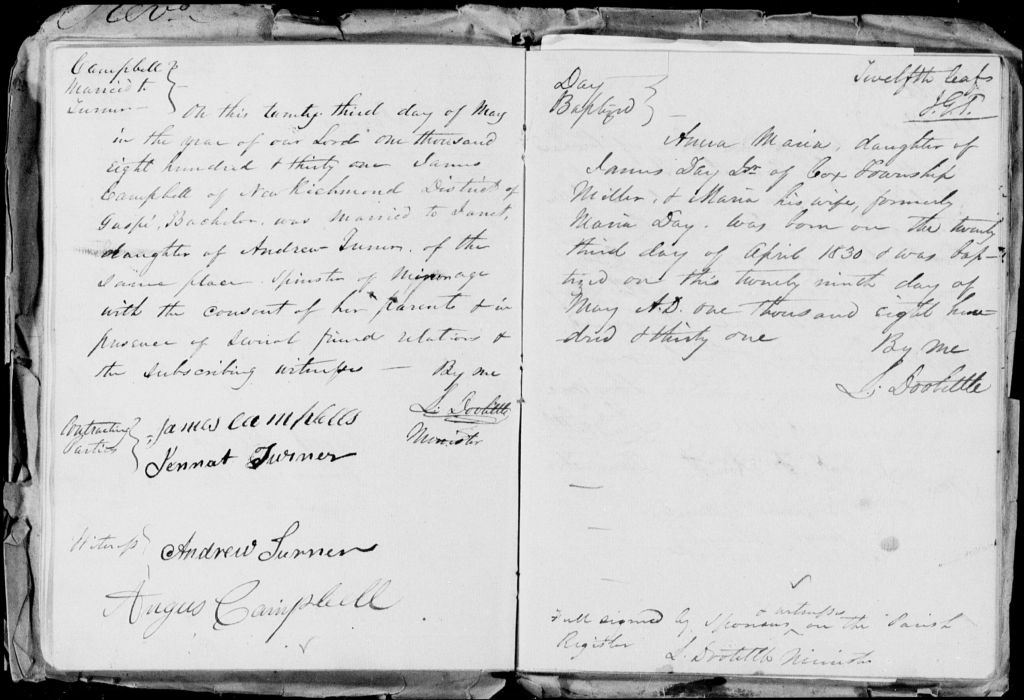 Campbell
Married to
Turner
On this twenty third day of May
in the year of our Lord one thousand
eight hundred & thirty one James
Campbell of New Richmond District of
Gaspé, Bachelor, was married to Janet,
daughter of Andrew Turner, of the
same place Spinster of Minorage
with the consent of her parents & in
presence of several friend relations &
the subscribing witnesses — By me
L: Doolittle
Minister
Contracting
Parties
James Campbells
Jennat Turner
Witness
Andrew Turner
Angus Campbell
Twelfth leaf
J.G.T.
Day
Baptized
Anna Maria, daughter of
James Day Jr. of Cox Township
Miller, & Maria his wife, formerly
Maria Day. was born on the twenty
third day of April 1830 & was bap-
tized on this twenty ninth day of
May A.D. one thousand eight hun-
dred & thirty one By me
L: Doolittle
Full signed by Sponsors & witnesses on the Parish
Register L. Doolittle Minister